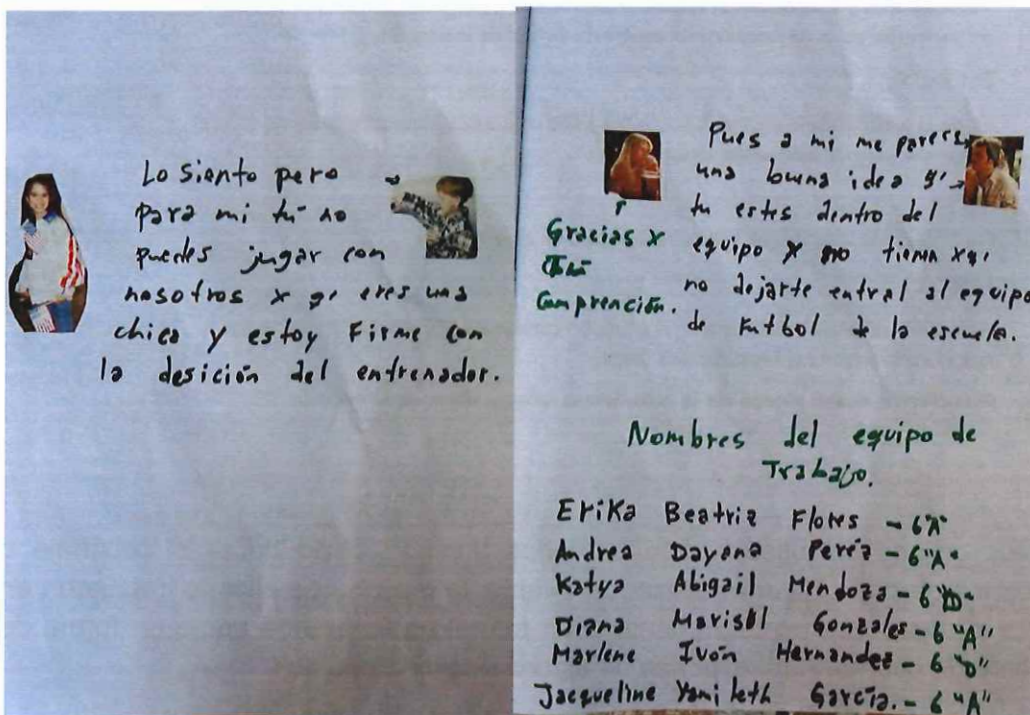 Lo Siento pero
para mi tú no
puedes jugar con
nosotros x q' eres una
chica y estoy Firme con
la desición del entrenador.
Pues a mi me parece
una buena idea q'
tu estes dentro del
equipo x no tienen xq'
no dejarte entral al equipo
de Futbol de la escuela.
Gracias x
tú
Comprención.
Nombres del equipo de
Trabajo.
Erika Beatriz Flores - 6"A"
Andrea Dayana Peréz - 6"A"
Katya Abigail Mendoza - 6"D"
Diana Marisol Gonzales - 6"A"
Marlene Ivón Hernandez - 6"D"
Jacqueline Yamileth García. - 6"A"